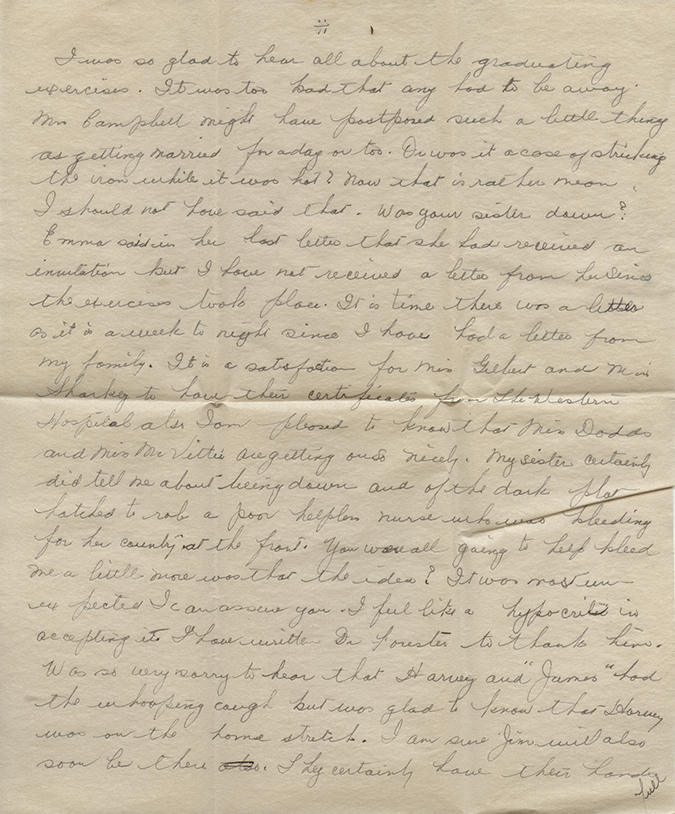 11
I was so glad to hear all about the graduating
exercises. It was too bad that any had to be away.
Mrs Campbell might have postponed such a little thing
as getting married for a day or too. Or was it a case of striking
the iron while it was hot? Now that is rather mean,
I should not have said that. Was your sister down?
Emma said in her last letter that she had received an
invitation but I have not received a letter from her since
the exercises took place. It is time there was a letter
as it is a week to night since I have had a letter from
my family. It is a satisfaction for Miss Gilbert and Miss
Sharkey to have their certificates from the Western
Hospital also I am pleased to know that Miss Dodds
and Miss McVittie are getting on so nicely. My sister certainly
did tell me about being down and of the dark plot
hatched to rob a poor helpless nurse who was bleeding
for her country at the front. You were all going to help bleed
me a little more was that the idea? It was most un-
expected I can assure you. I feel like a hypocrite in
accepting it. I have written Dr Forester to thank him.
Was so very sorry to hear that Harvey and "James" had
the whooping cough but was glad to know that Harvey
was on the home stretch. I am sure Jim will also
soon be there also. They certainly have their hands
full